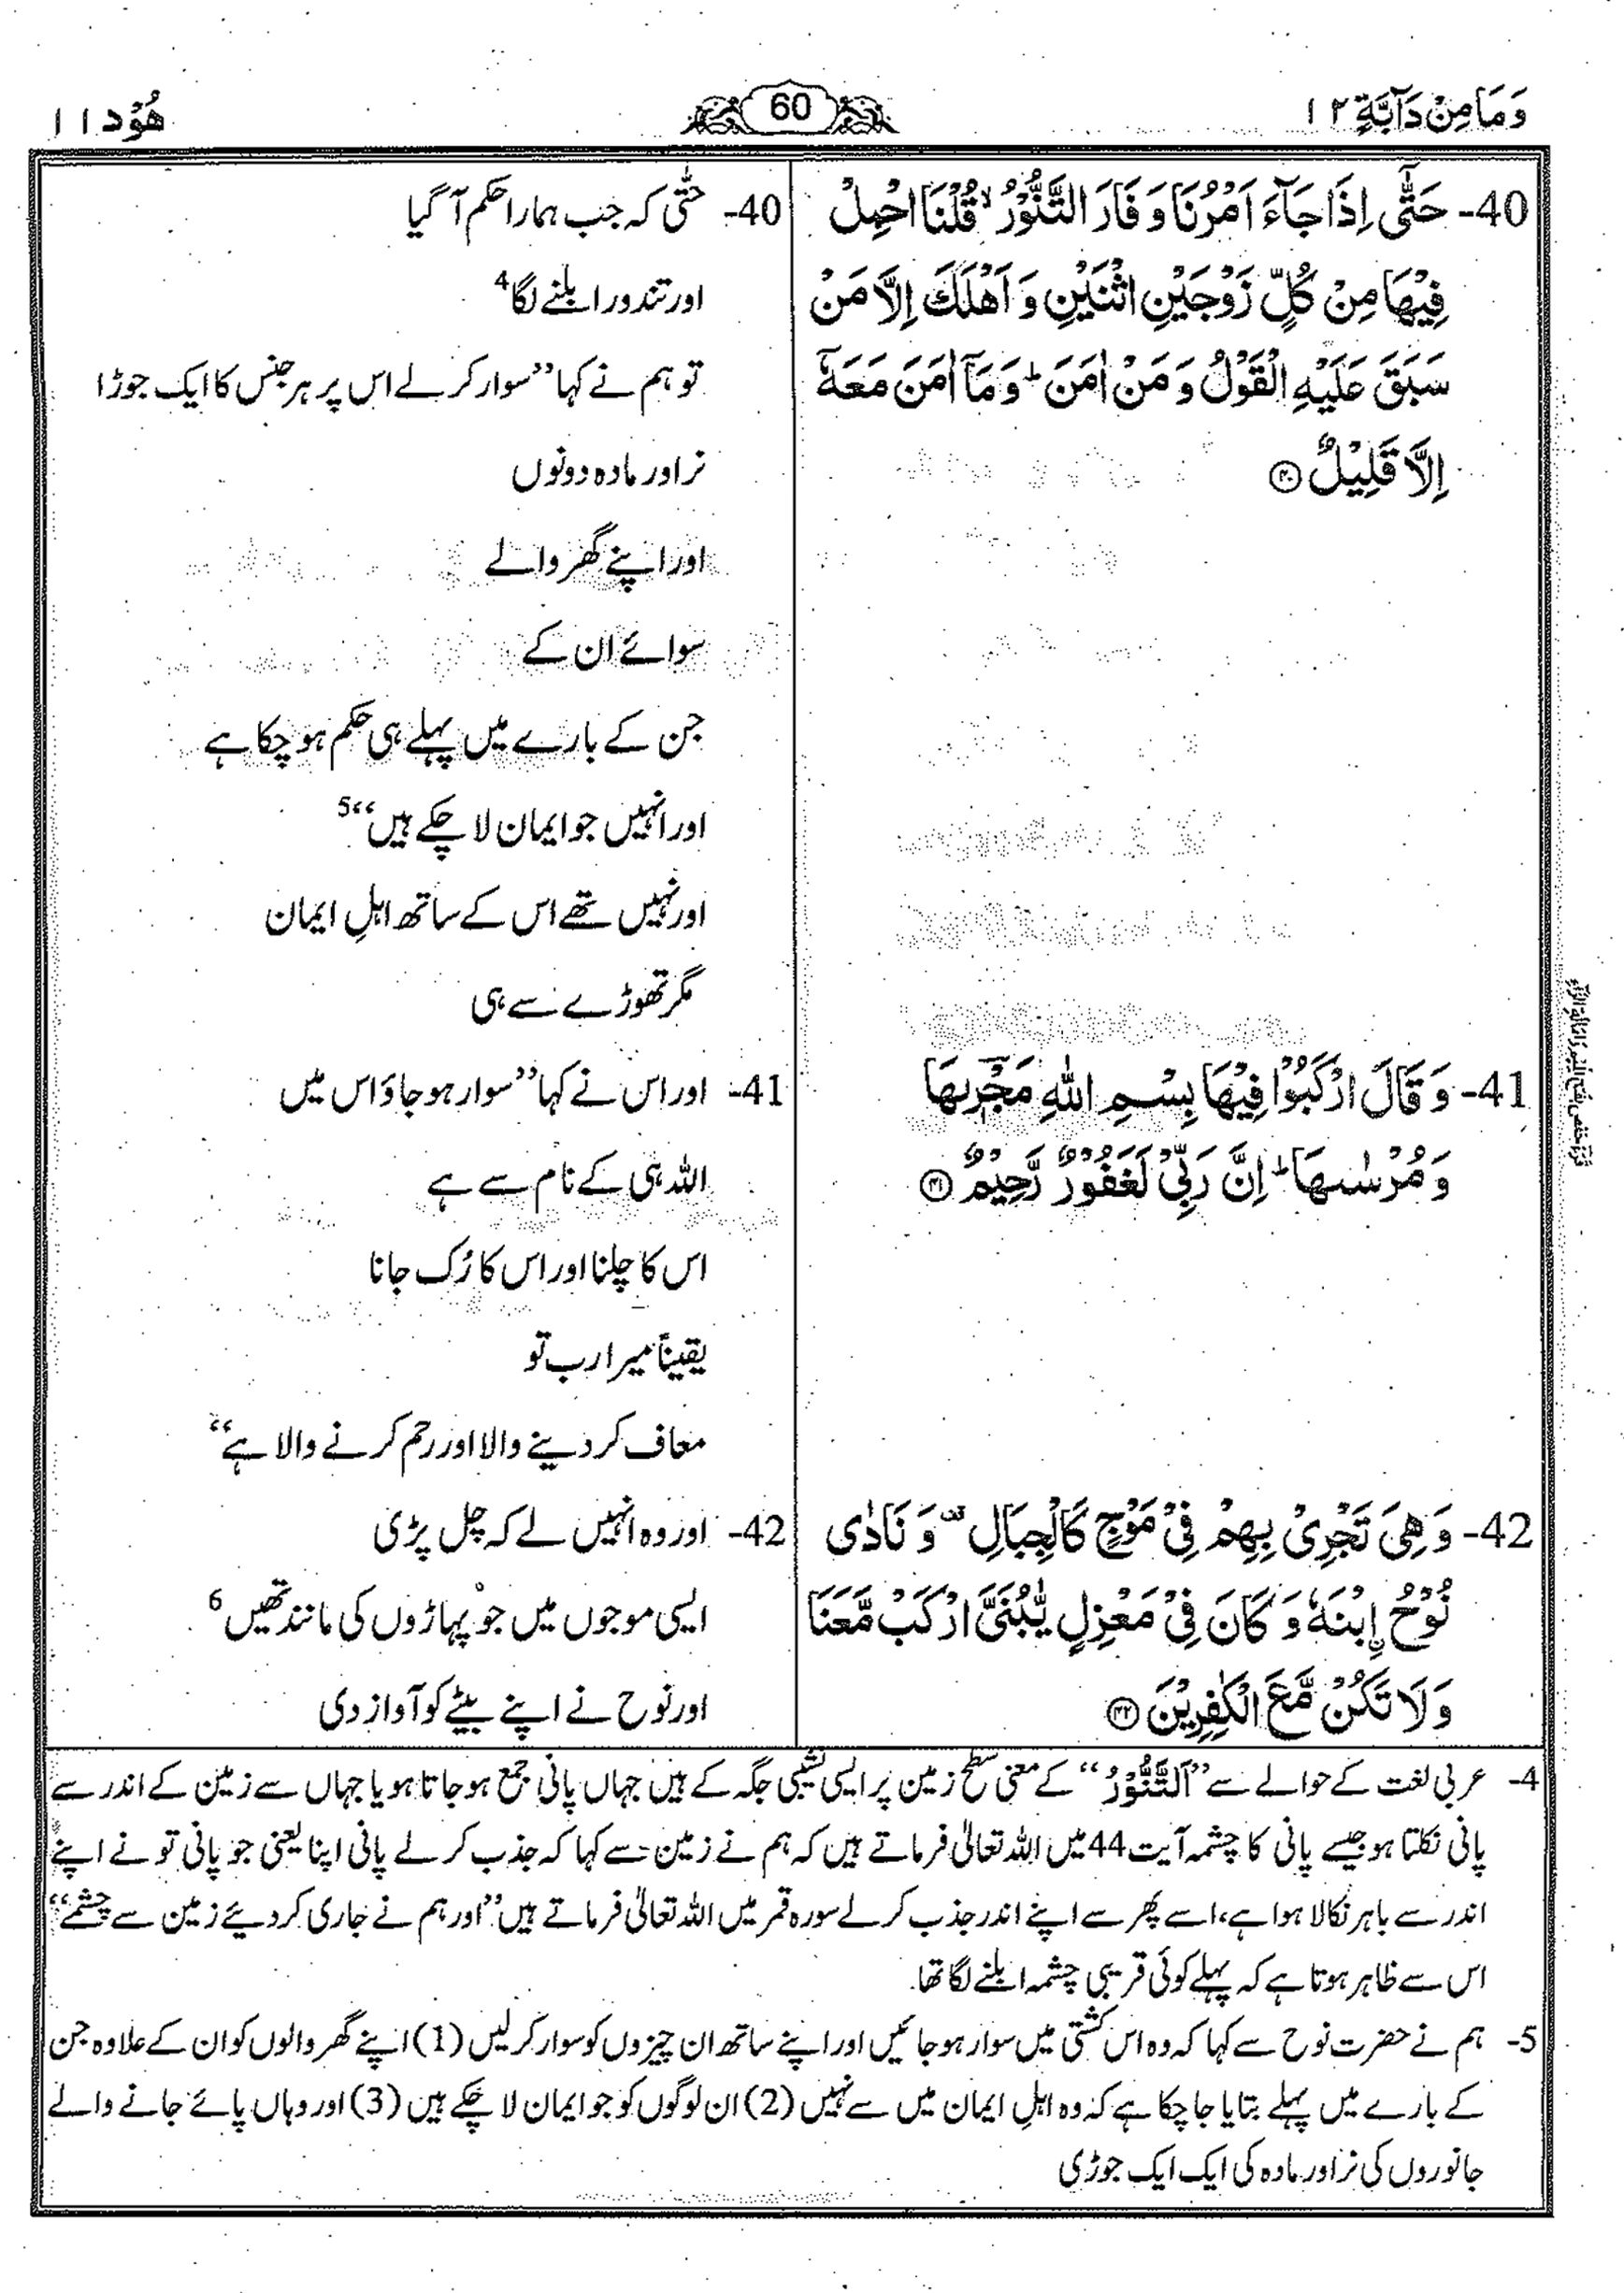 وَمَا مِنْ دَآبَّةٍ ۱۲
60
هُوْد ۱۱
40- حَتّٰۤى اِذَا جَآءَ اَمْرُنَا وَ فَارَ التَّنُّوْرُ ۙ قُلْنَا احْمِلْ
فِيْهَا مِنْ كُلٍّ زَوْجَيْنِ اثْنَيْنِ وَ اَهْلَكَ اِلَّا مَنْ
سَبَقَ عَلَيْهِ الْقَوْلُ وَ مَنْ اٰمَنَ ؕ وَ مَاۤ اٰمَنَ مَعَهٗۤ
اِلَّا قَلِيْلٌ ۴۰
40- حتّٰی کہ جب ہمارا حکم آ گیا
اور تندور ابلنے لگا4
تو ہم نے کہا ’’سوار کر لے اس پر ہر جنس کا ایک جوڑا
نر اور مادہ دونوں
اور اپنے گھر والے
سوائے ان کے
جن کے بارے میں پہلے ہی حکم ہو چکا ہے
اور انہیں جو ایمان لا چکے ہیں‘‘5
اور نہیں تھے اس کے ساتھ اہلِ ایمان
مگر تھوڑے سے ہی
41- وَ قَالَ ارْكَبُوْا فِيْهَا بِسْمِ اللّٰهِ مَجْرٖىهَا
وَ مُرْسٰىهَا ؕ اِنَّ رَبِّيْ لَغَفُوْرٌ رَّحِيْمٌ ۴۱
41- اور اس نے کہا ’’سوار ہو جاؤ اس میں
اللہ ہی کے نام سے ہے
اس کا چلنا اور اس کا رُک جانا
یقیناً میرا رب تو
معاف کر دینے والا اور رحم کرنے والا ہے‘‘
42- وَ هِيَ تَجْرِيْ بِهِمْ فِيْ مَوْجٍ كَالْجِبَالِ ۫ وَ نَادٰى
نُوْحُ اِ۟بْنَهٗ وَ كَانَ فِيْ مَعْزِلٍ يّٰبُنَيَّ ارْكَبْ مَّعَنَا
وَ لَا تَكُنْ مَّعَ الْكٰفِرِيْنَ ۴۲
42- اور وہ انہیں لے کہ چل پڑی
ایسی موجوں میں جو پہاڑوں کی مانند تھیں6
اور نوح نے اپنے بیٹے کو آواز دی
4- عربی لغت کے حوالے سے ’’اَلتَّنُّوْرُ‘‘ کے معنی سطح زمین پر ایسی نشیبی جگہ کے ہیں جہاں پانی جمع ہو جاتا ہو یا جہاں سے زمین کے اندر سے
پانی نکلتا ہو جیسے پانی کا چشمہ آیت 44 میں اللہ تعالیٰ فرماتے ہیں کہ ہم نے زمین سے کہا کہ جذب کر لے پانی اپنا یعنی جو پانی تو نے اپنے
اندر سے باہر نکالا ہوا ہے، اسے پھر سے اپنے اندر جذب کر لے سورہ قمر میں اللہ تعالیٰ فرماتے ہیں ’’اور ہم نے جاری کر دیئے زمین سے چشمے‘‘
اس سے ظاہر ہوتا ہے کہ پہلے کوئی قریبی چشمہ ابلنے لگا تھا.
5- ہم نے حضرت نوح سے کہا کہ وہ اس کشتی میں سوار ہو جائیں اور اپنے ساتھ ان چیزوں کو سوار کر لیں (1) اپنے گھر والوں کو ان کے علاوہ جن
کے بارے میں پہلے بتایا جا چکا ہے کہ وہ اہلِ ایمان میں سے نہیں (2) ان لوگوں کو جو ایمان لا چکے ہیں (3) اور وہاں پائے جانے والے
جانوروں کی نر اور مادہ کی ایک ایک جوڑی